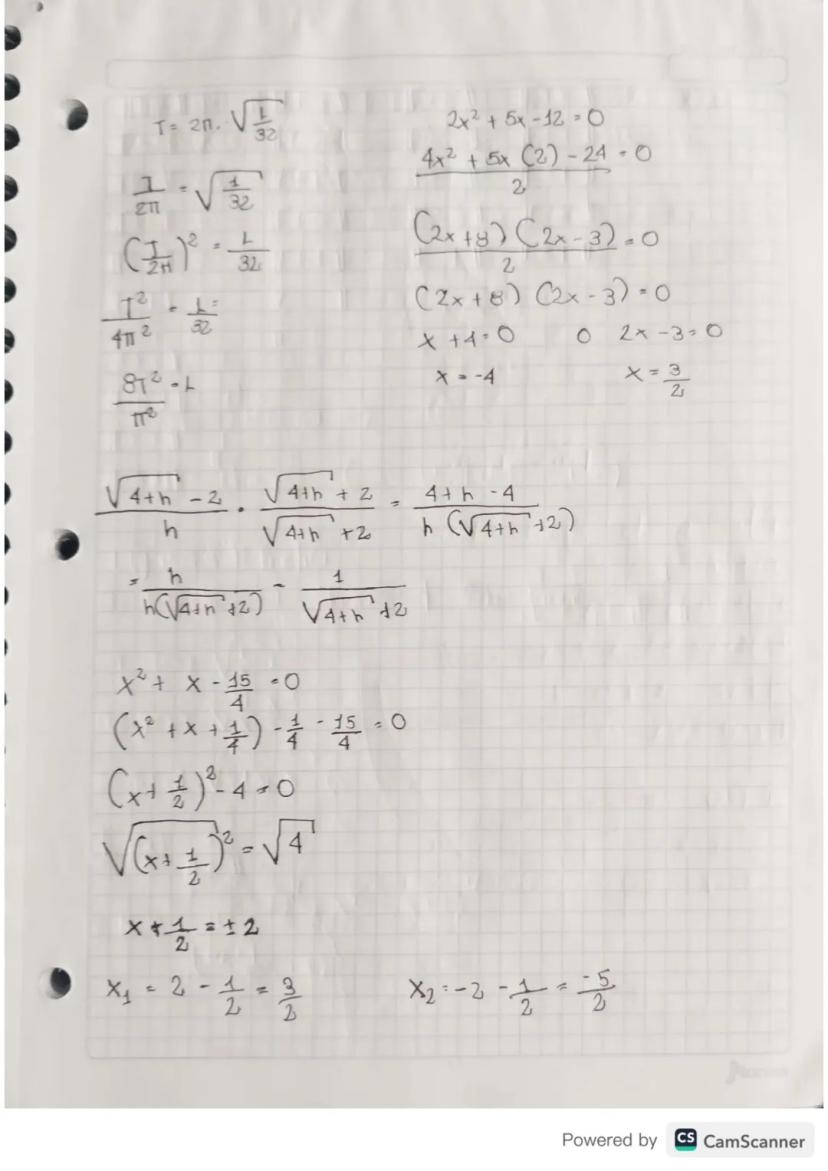 T = 2π. √(L/32)
T/2π = √(1/32)
(T/2π)² = L/32
T²/4π² = L/32 =
8T²/π² = L
2x² + 5x - 12 = 0
(4x² + 5x (2) - 24)/2 = 0
((2x + 8) (2x - 3))/2 = 0
(2x + 8) (2x - 3) = 0
x + 4 = 0 o 2x - 3 = 0
x = -4 x = 3/2
(√(4+h) - 2)/h · (√(4+h) + 2)/(√(4+h) + 2) = (4+h - 4)/(h (√(4+h) + 2))
= h/(h(√(4+h) + 2)) = 1/(√(4+h) + 2)
x² + x - 15/4 = 0
(x² + x + 1/4) - 1/4 - 15/4 = 0
(x + 1/2)² - 4 = 0
√(x + 1/2)² = √4
x + 1/2 = ± 2
x₁ = 2 - 1/2 = 3/2 x₂ = -2 - 1/2 = -5/2
Powered by CS CamScanner